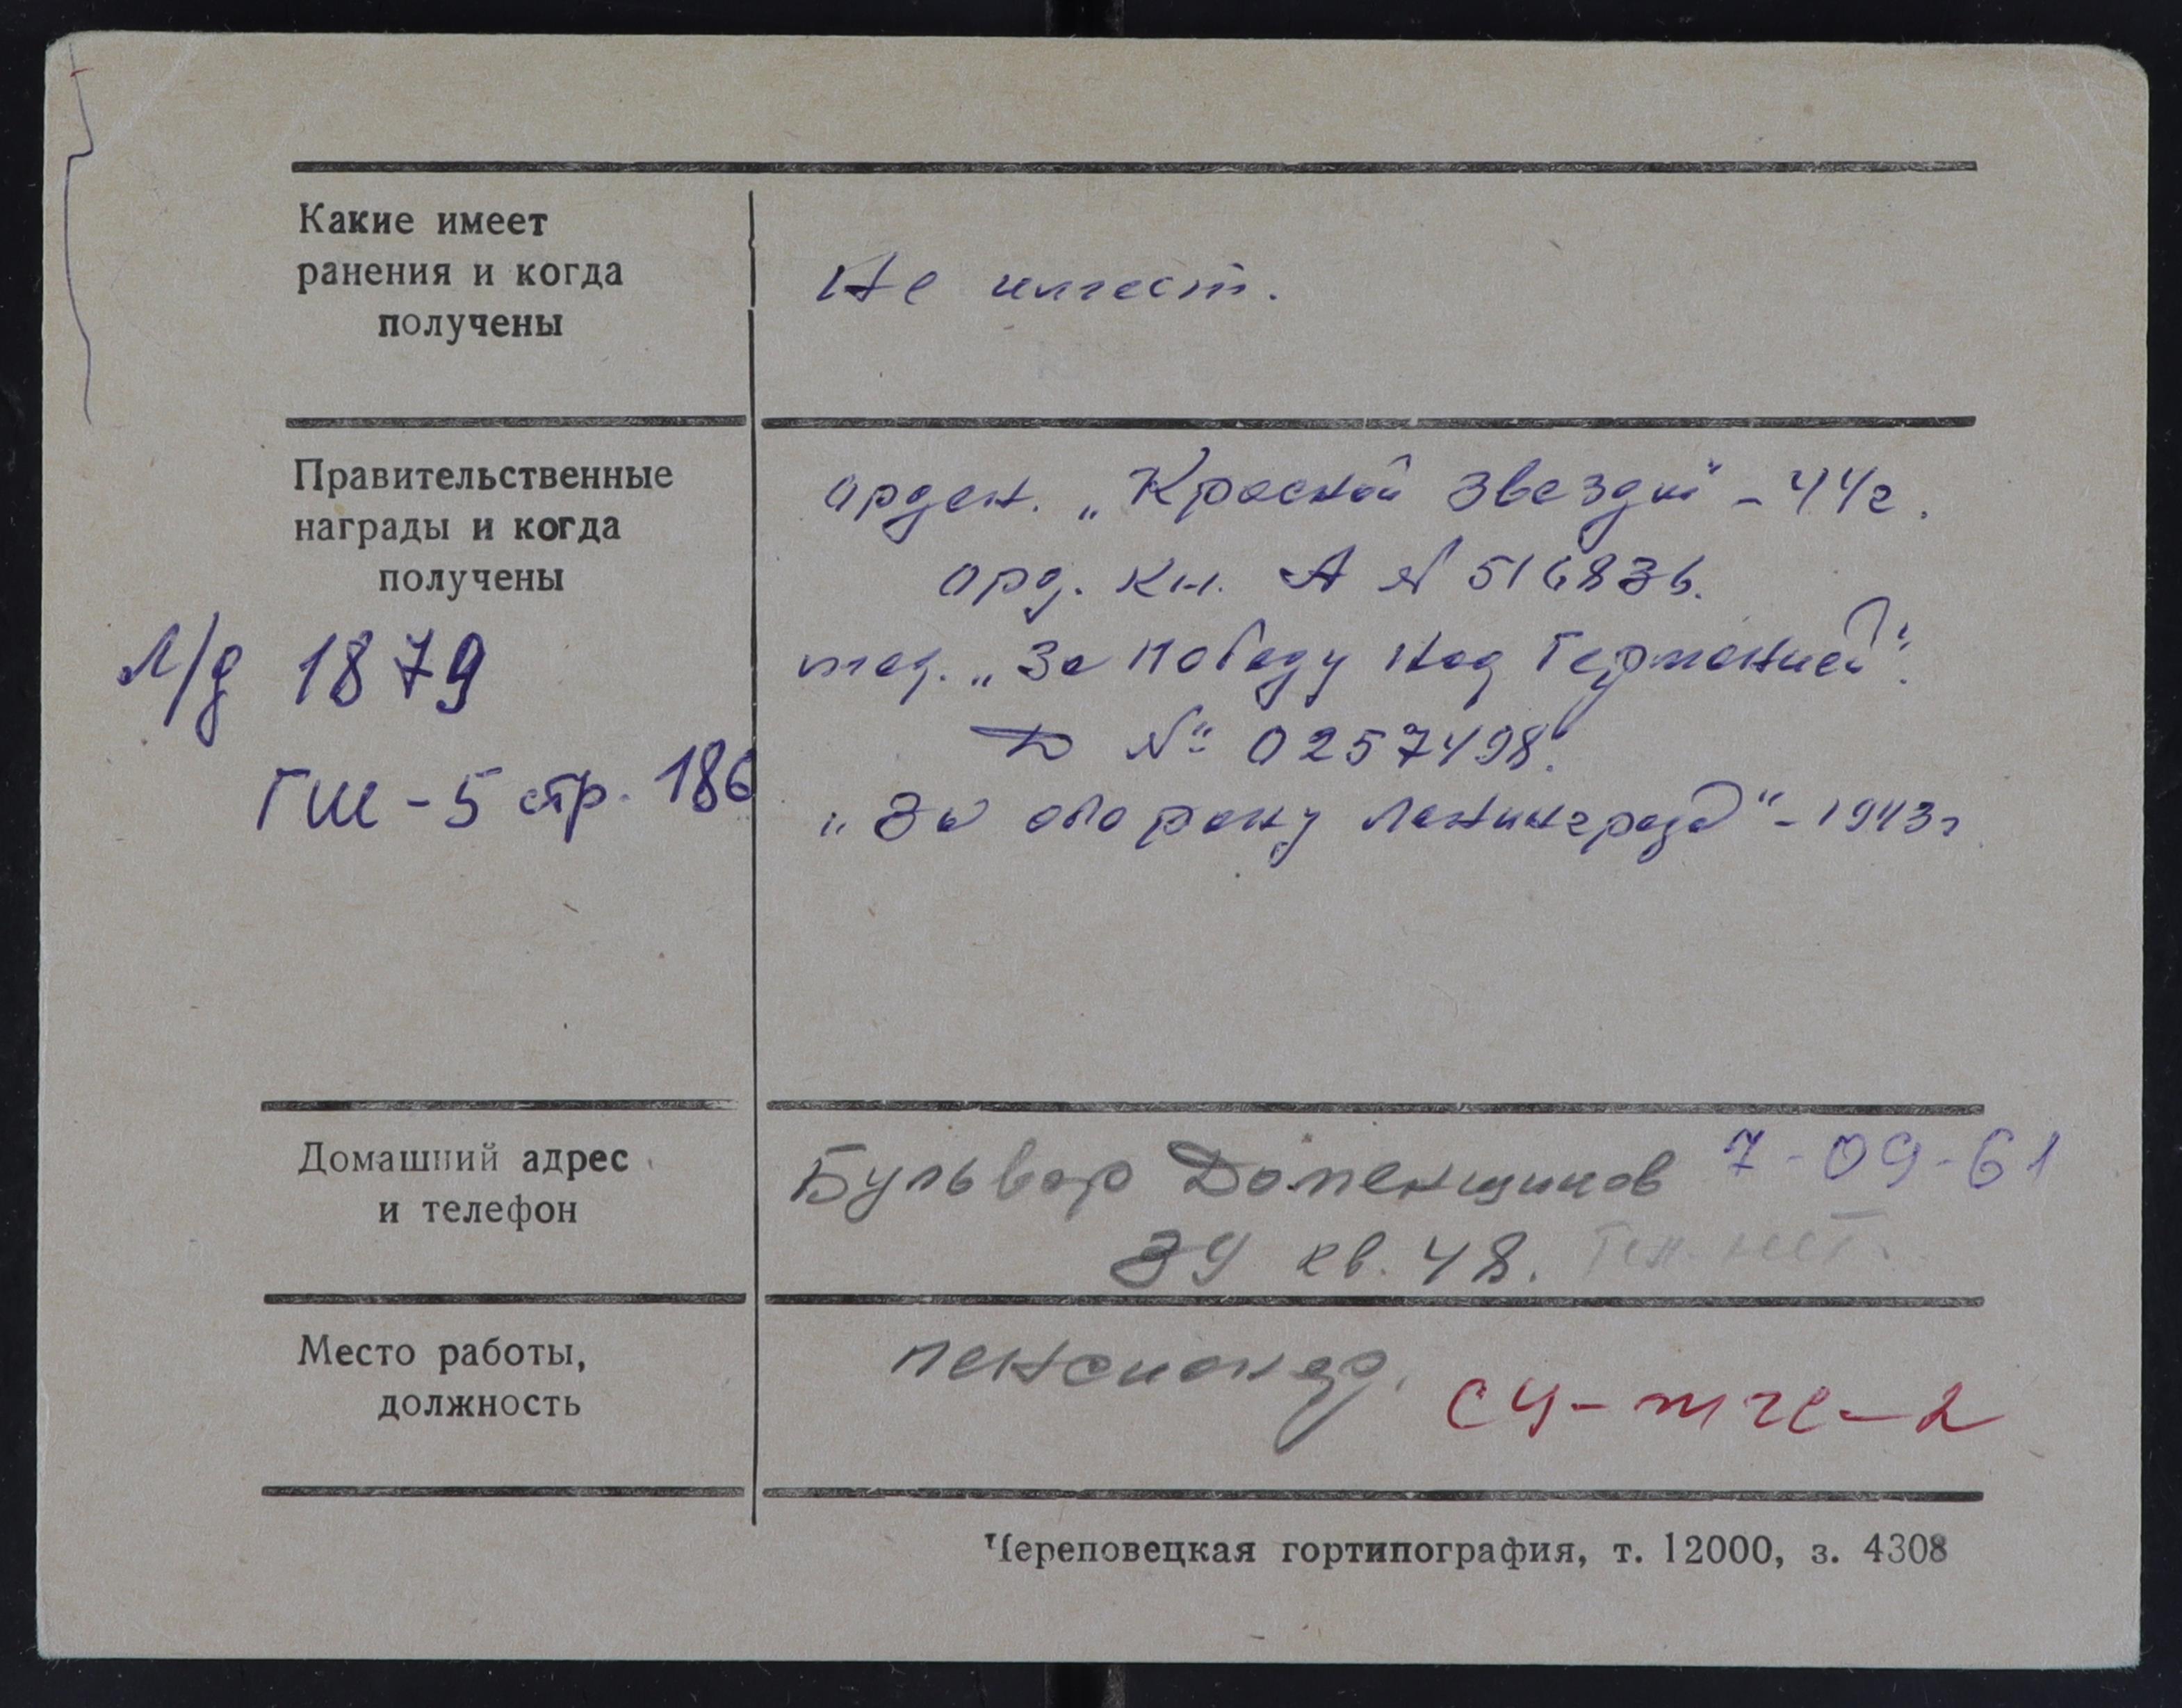 Какие имеет
ранения и когда
получены
Не имеет.
Правительственные
награды и когда
получены
орден. „Красной Звезды" - 44г.
орд. кн. А № 516836.
мед. „За Победу над Германией".
D № 0257498.
„За оборону Ленинграда" - 1943г
л/д 1879
ГШ - 5 стр. 186
Домашний адрес
и телефон
Бульвар Доменщиков 7-09-61
39 кв. 48. Тел. нет.
Место работы,
должность
пенсионер.
СУ-
Череповецкая гортипография, т. 12000, з. 4308